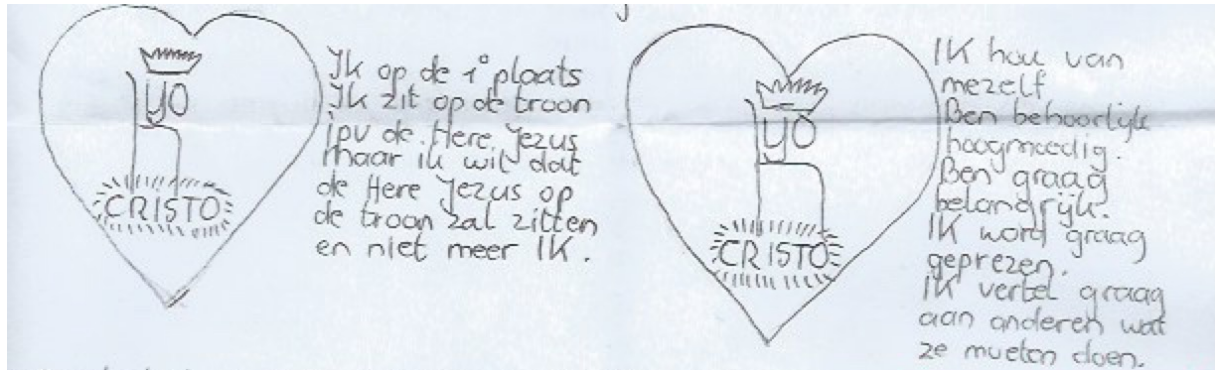 YO
CRISTO
Ik op de 1e plaats
Ik zit op de troon
ipv de Here Jezus
maar ik wil dat
de Here Jezus op
de troon zal zitten
en niet meer IK.
YO
CRISTO
IK hou van
mezelf
Ben behoorlijk
hoogmoedig.
Ben graag
belangrijk.
IK word graag
geprezen.
IK vertel graag
aan anderen wat
ze moeten doen.